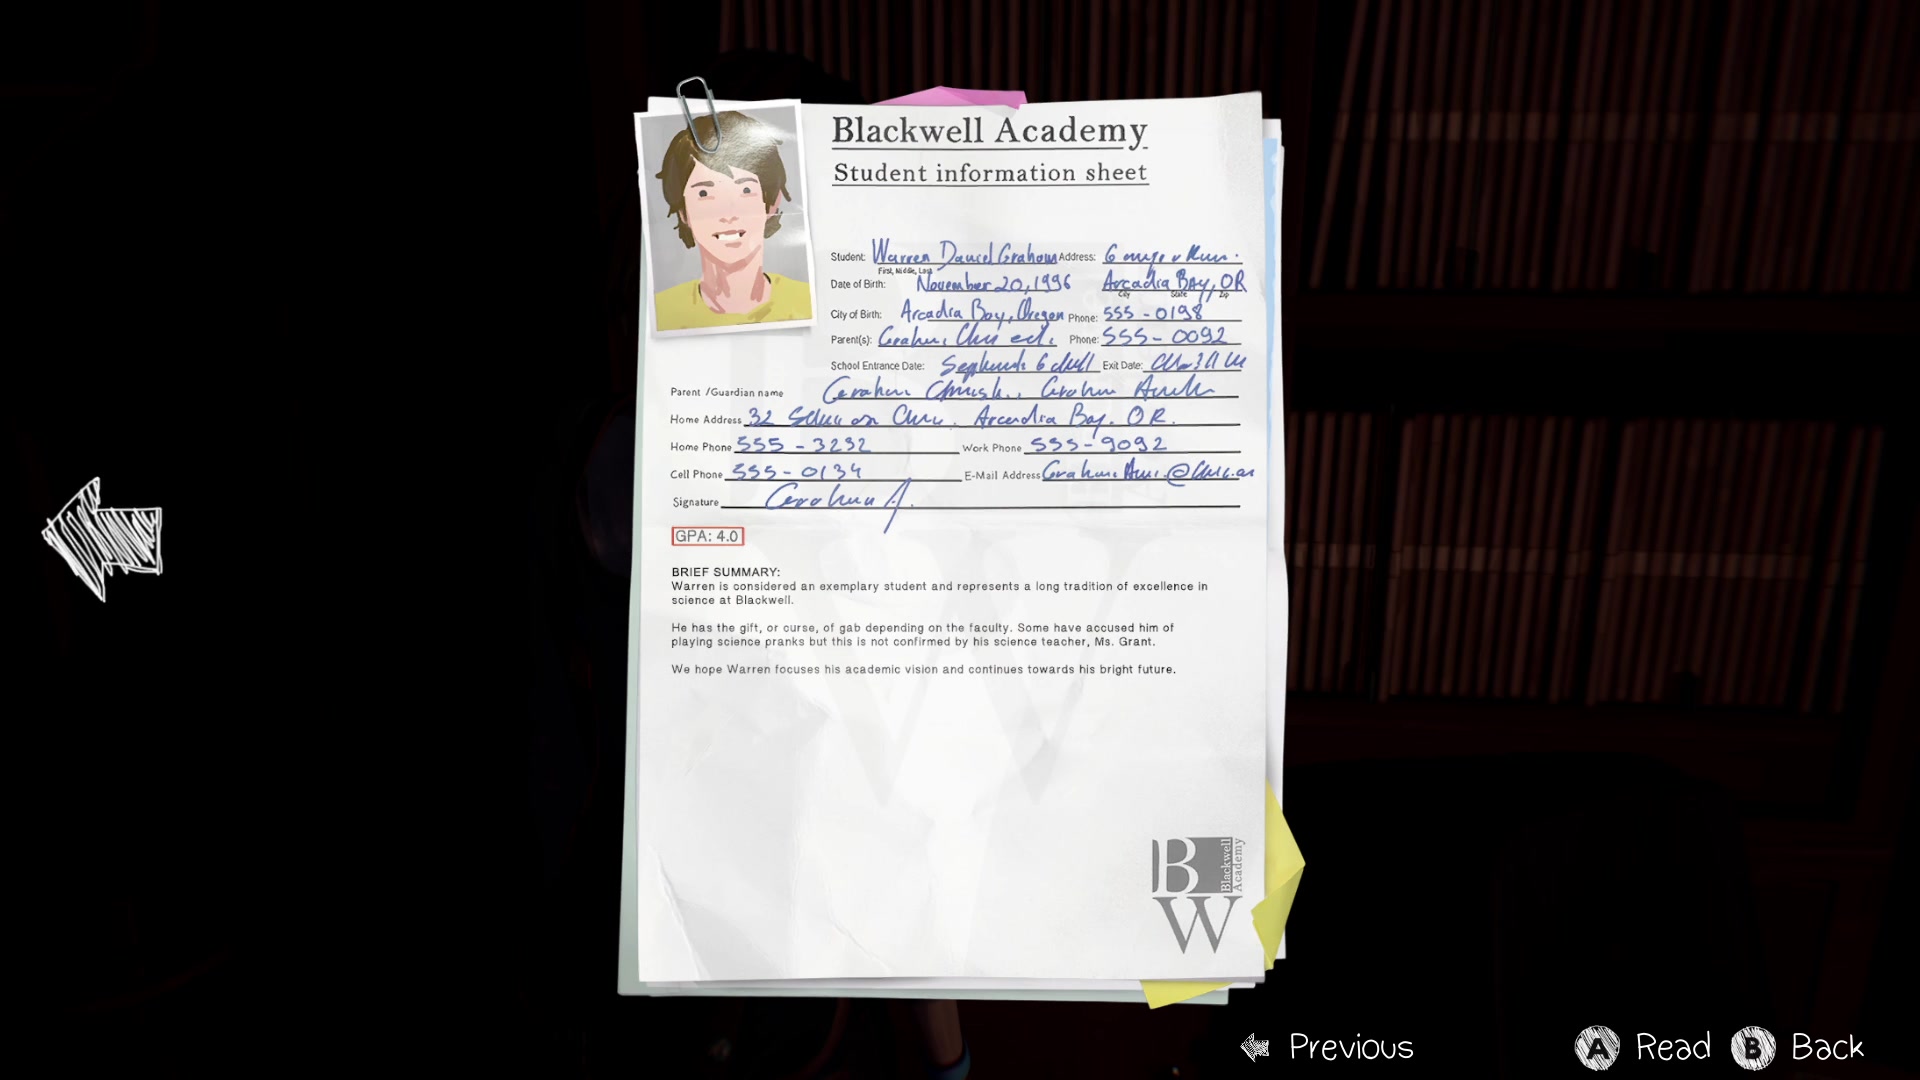 Blackwell Academy
Student information sheet
Student: Warren Daniel Graham Address: 6
First, Middle, Last
Date of Birth: November 20, 1996 Arcadia Bay, OR
City State Zip
City of Birth: Arcadia Bay, Oregon Phone: 555-0198
Parent(s): Graham Phone: 555-0092
School Entrance Date: Exit Date:
Parent /Guardian name Graham Graham
Home Address 32 Arcadia Bay. OR.
Home Phone 555-3232 Work Phone 555-9092
Cell Phone 555-0134 E-Mail Address
Signature Graham A.
GPA: 4.0
BRIEF SUMMARY:
Warren is considered an exemplary student and represents a long tradition of excellence in
science at Blackwell.
He has the gift, or curse, of gab depending on the faculty. Some have accused him of
playing science pranks but this is not confirmed by his science teacher, Ms. Grant.
We hope Warren focuses his academic vision and continues towards his bright future.
B Blackwell Academy
W
Previous A Read B Back